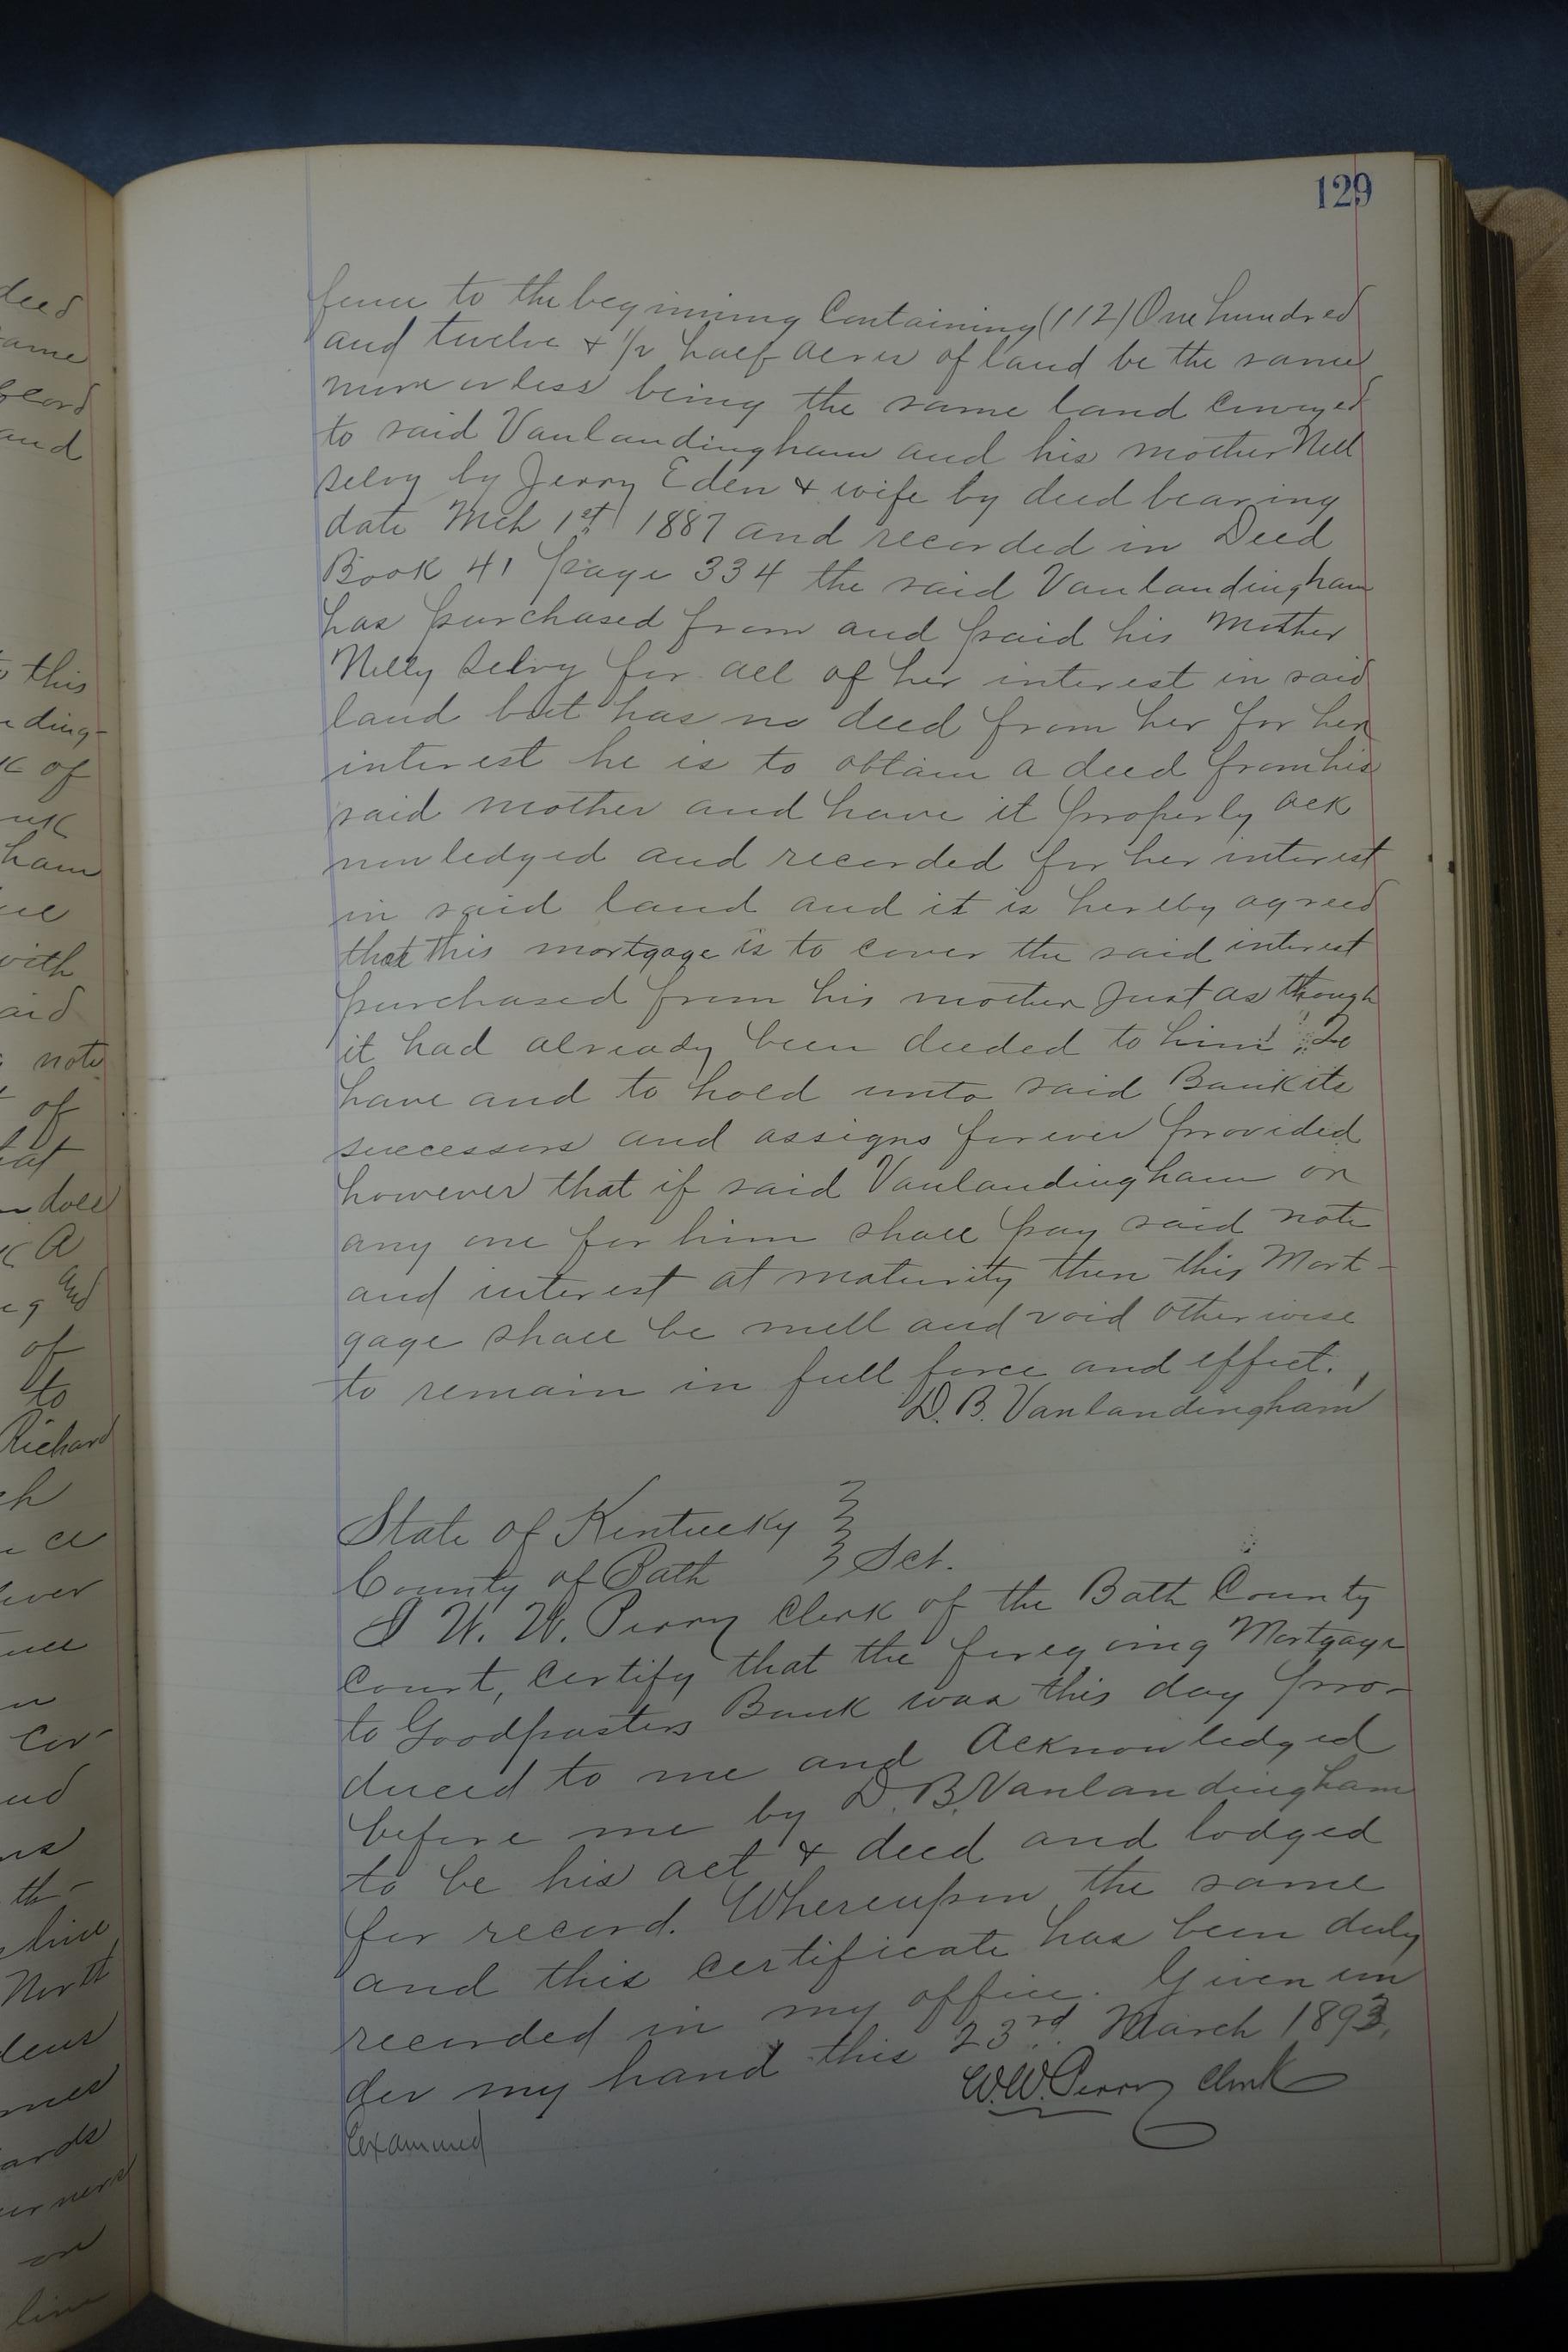 129
fence to the beginning Containing (112) One hundred
and twelve & 1/2 half acres of land be the same
more or less being the same land conveyed
to said Vanlandingham and his mother Nell
Selvy by Jerry Eden & wife by deed bearing
date Mch 1st 1887 and recorded in Deed
Book 41 page 334 the said Vanlandingham
has purchased from and paid his Mother
Nelly Selvy for all of her interest in said
land but has no deed from her for her
interest he is to obtain a deed from his
said mother and have it properly ack
nowledged and recorded for her interest
in said land and it is hereby agreed
that this mortgage is to cover the said interest
purchased from his mother Just as though
it had already been deeded to him To
have and to hold unto said Bank its
successors and assigns forever provided
however that if said Vanlandingham or
any one for him shall pay said note
and interest at maturity then this Mort-
gage shall be null and void otherwise
to remain in full force and effect.
D. B. Vanlandingham
State of Kentucky
County of Bath } Sct.
I W. W. Perry Clerk of the Bath County
Court, Certify that the foregoing Mortgage
to Goodpasters Bank was this day pro-
duced to me and Acknowledged
before me by D. B. Vanlandingham
to be his act & deed and lodged
for record. Whereupon the same
and this certificate has been duly
recorded in my office. Given un
der my hand this 23rd March 1893.
W. W. Perry Clerk
Examined
deed
and
this
ding-
of
ham
with
note
of
does
A
and
of
to
Richard
a
Cor-
th-
line
North
on
line